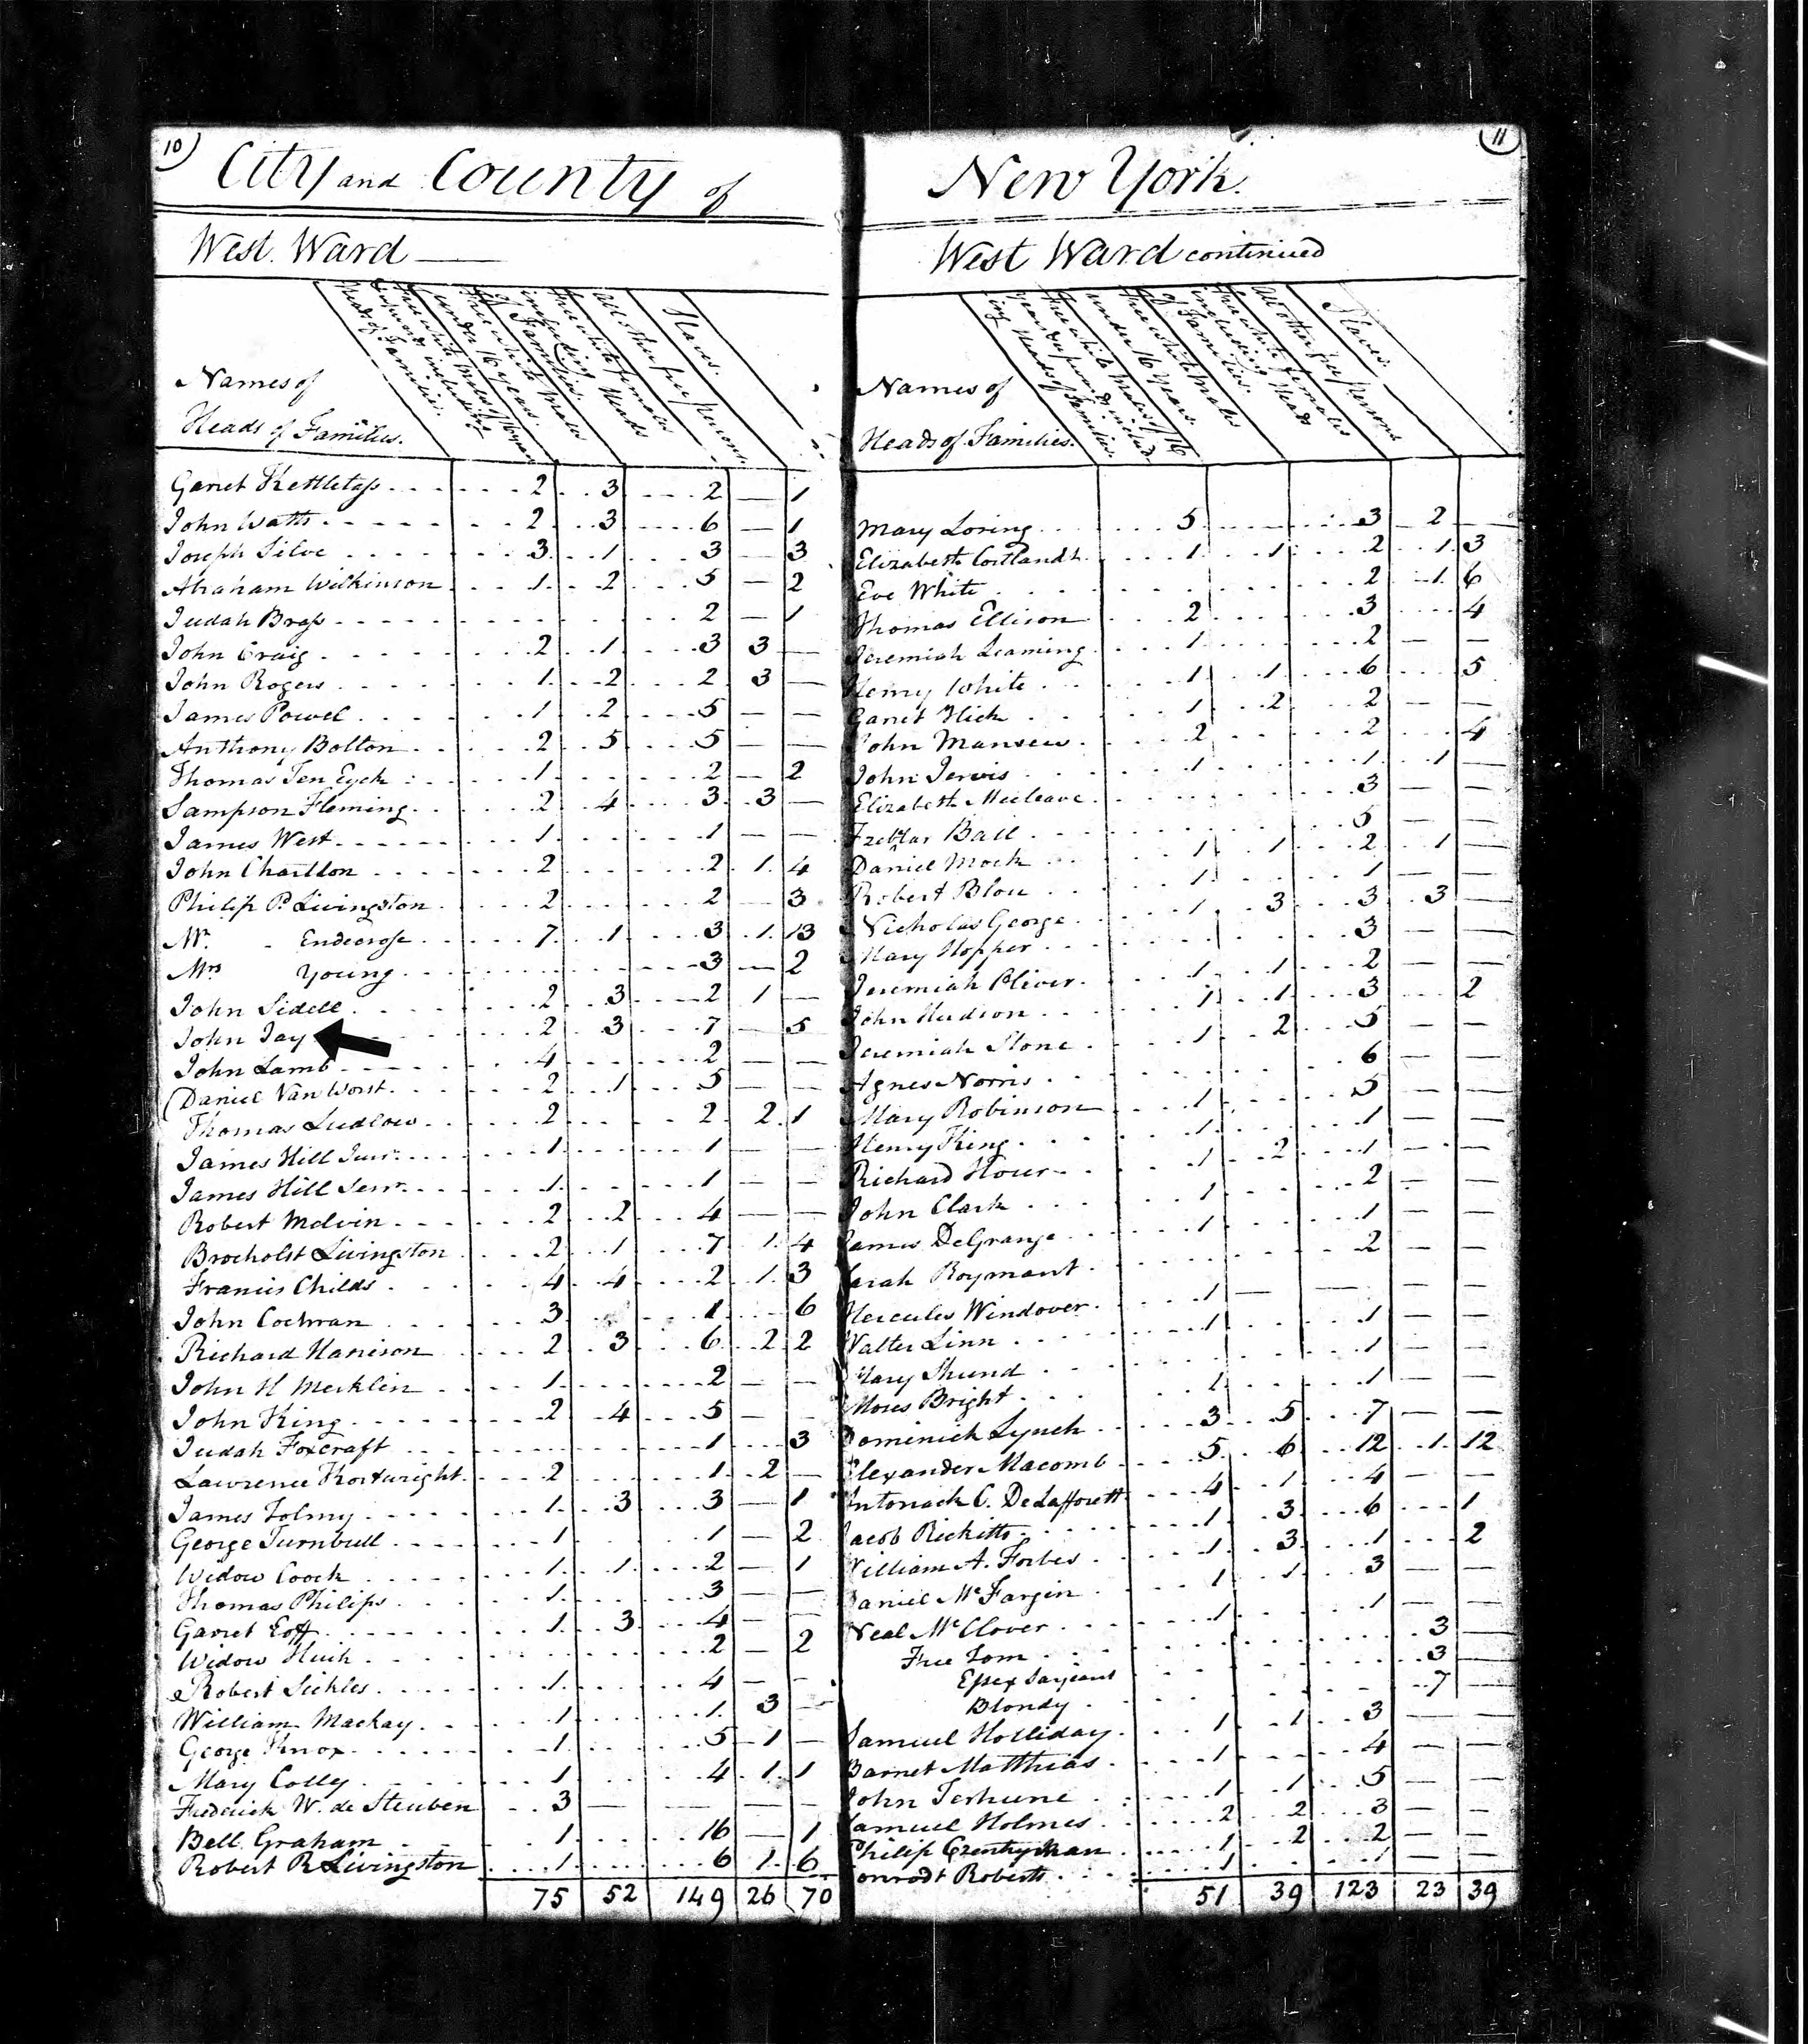 10
City and County of
West Ward
Names of
Heads of Families.
Free white Males of 16 years & upward including heads of Families.
Free white Males under 16 years.
Free white females including Heads of Families.
All other free persons.
Slaves.
Garret Kettletass 2 3 2 — 1
John Watts 2 3 6 — 1
Joseph Silve 3 1 3 — 3
Abraham Wilkinson 1 2 5 — 2
Judah Brass 2 — 1
John Craig 2 1 3 3 —
John Rogers 1 2 2 3 —
James Powel 1 2 5 — —
Anthony Bolton 2 5 5 — —
Thomas Ten Eyck 1 2 — 2
Sampson Fleming 2 4 3 3 —
James West 1 1 — —
John Charlton 2 2 1 4
Philip P. Livingston 2 2 3
Mr. Endecrose 7 1 3 1 13
Mrs Young 3 — 2
John Sidell 2 3 2 1 —
John Jay 2 3 7 — 5
John Lamb 4 2 — —
Daniel Van Worst 2 1 5 — —
Thomas Ludlow 2 2 2 1
James Hill Junr. 1 1 — —
James Hill Senr. 1 1 — —
Robert Melvin 2 2 4 — —
Brocholst Livingston 2 1 7 1 4
Francis Childs 4 4 2 1 3
John Cochran 3 1 6
Richard Harrison 2 3 6 2 2
John H Merklin 1 2 — —
John King 2 4 5 — —
Judah Foxcraft 1 3
Lawrence Kortwright 2 1 2 —
James Tolmy 1 3 3 — 1
George Turnbull 1 1 — 2
Widow Coock 1 1 2 — 1
Thomas Philips 1 3 — —
Garret Eoff 1 3 4 — —
Widow 2 — 2
Robert Sickles 1 4 — —
William Mackay 1 1 3 —
George Knox 1 5 1 —
Mary Colly 1 4 1 1
Frederick W. de Steuben 3 — — — —
Bell Graham 1 16 — 1
Robert R Livingston 1 6 1 6
75 52 149 26 70
11
New York.
West Ward continued
Names of
Heads of Families.
Free white Males of 16 years & upwards including Heads of Families.
Free white Males under 16 years.
Free white females including Heads of Families.
All other free persons
Slaves.
Mary Loring 5 3 2 —
Elizabeth Cortlandt 1 1 2 1 3
Eve White 2 1 6
Thomas Ellison 2 3 4
Jeremiah Leaming 1 2 — —
Henry White 1 1 6 5
Garret Hick 1 2 2 — —
John Manseu 2 2 4
John Jervis 1 1 1 —
Elizabeth 3 — —
Ball 5 — —
Daniel Mock 1 1 2 1 —
Robert Blou 1 1 — —
Nicholas George 1 3 3 3 —
Mary Hopper 3 — —
Jeremiah Oliver 1 1 2 — —
John Hudson 1 1 3 2
Jeremiah Stone 1 2 5 — —
Agnes Norris 6 — —
Mary Robinson 1 5 — —
Henry King 1 1 — —
Richard Hour 1 2 1 — —
John Clark 1 2 — —
James DeGrange 1 1 — —
Sarah Roymant 2 — —
Hercules Windover 1 — — — —
Walter Linn 1 1 — —
Mary Shund 1 — —
Moses Bright 1 1 — —
Dominick Lynch 3 5 7 — —
Alexander Macomb 5 6 12 1 12
C. DeLafforett 4 1 4 — —
Jacob Ricketts 1 3 6 1
William A. Forbes 1 3 1 2
Daniel McFargin 1 1 3 — —
Neal McClover 1 1 — —
Free Tom 3 —
Essex Sarjeant 3 —
Blondy 7 —
Samuel Holliday 1 1 3 — —
Barnet Matthias 1 4 — —
John Terhune 1 1 5 — —
Samuel Holmes 2 2 3 — —
Philip 1 2 2 — —
Conrodt Roberts 1 1 — —
51 39 123 23 39